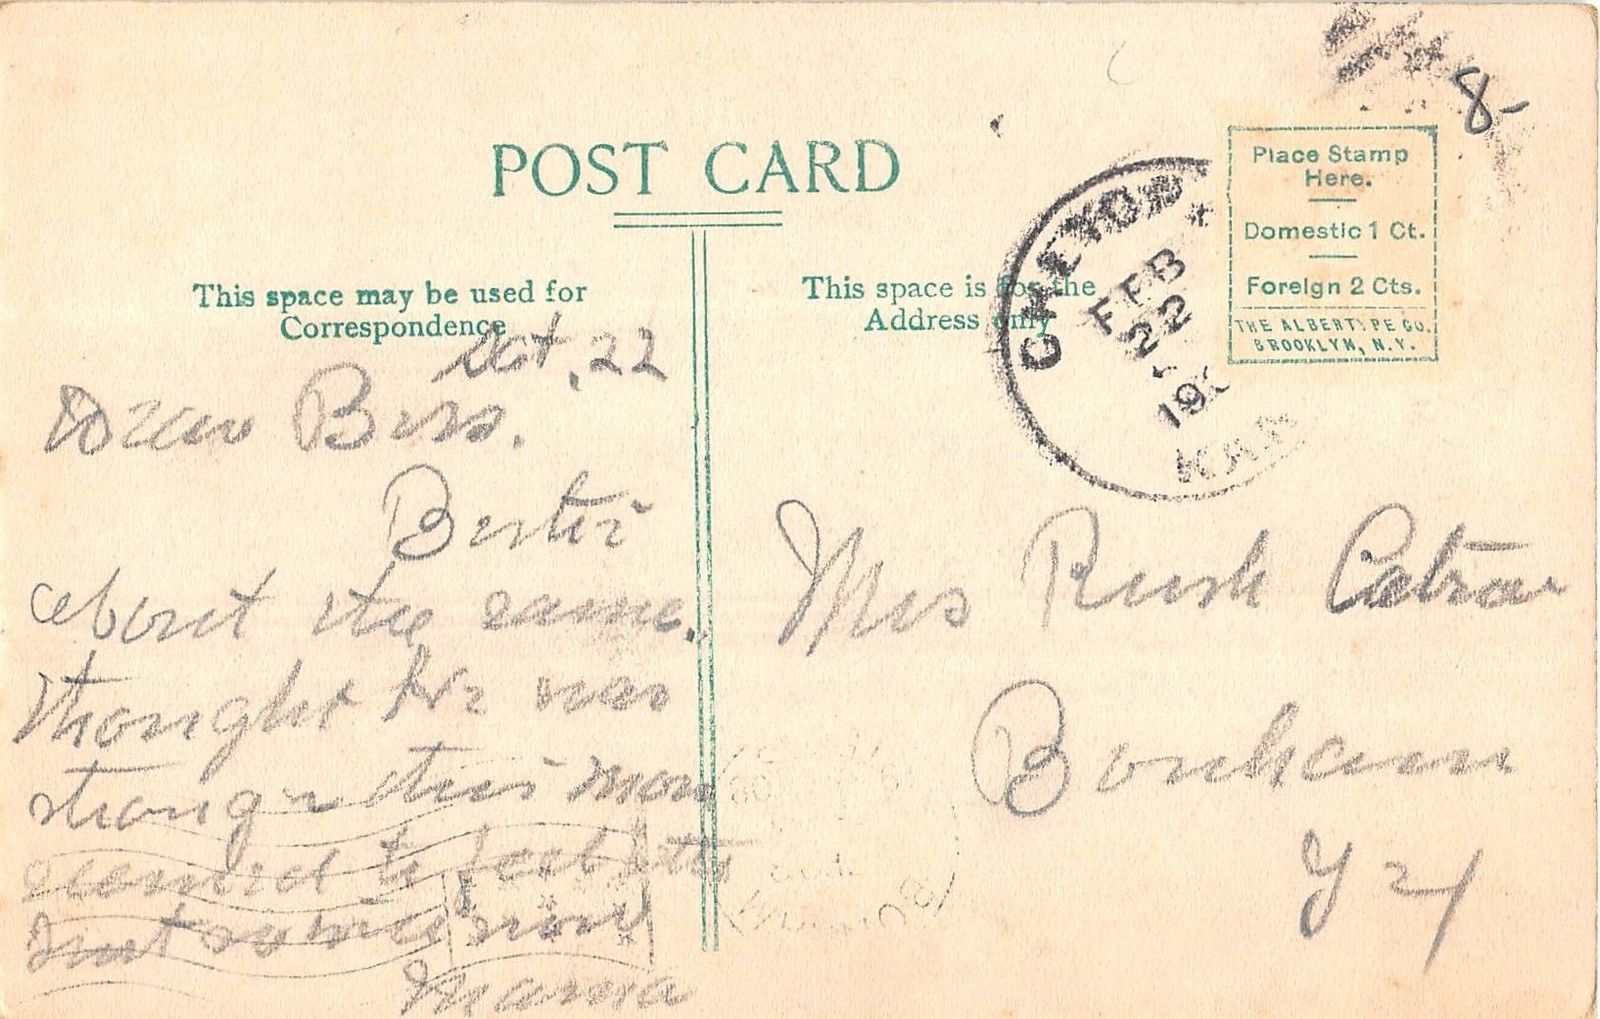 POST CARD
This space may be used for
Correspondence
This space is for the
Address only
Place Stamp
Here.
Domestic 1 Ct.
Foreign 2 Cts.
THE ALBERTYPE CO.,
BROOKLYN, N.Y.
8-
FEB
22
19
KAN
22
Dear Bess.
about the same.
thought he was
stronger this morn
seemed to feel better
not so nice now
Mama
Mrs Rush
Bonham